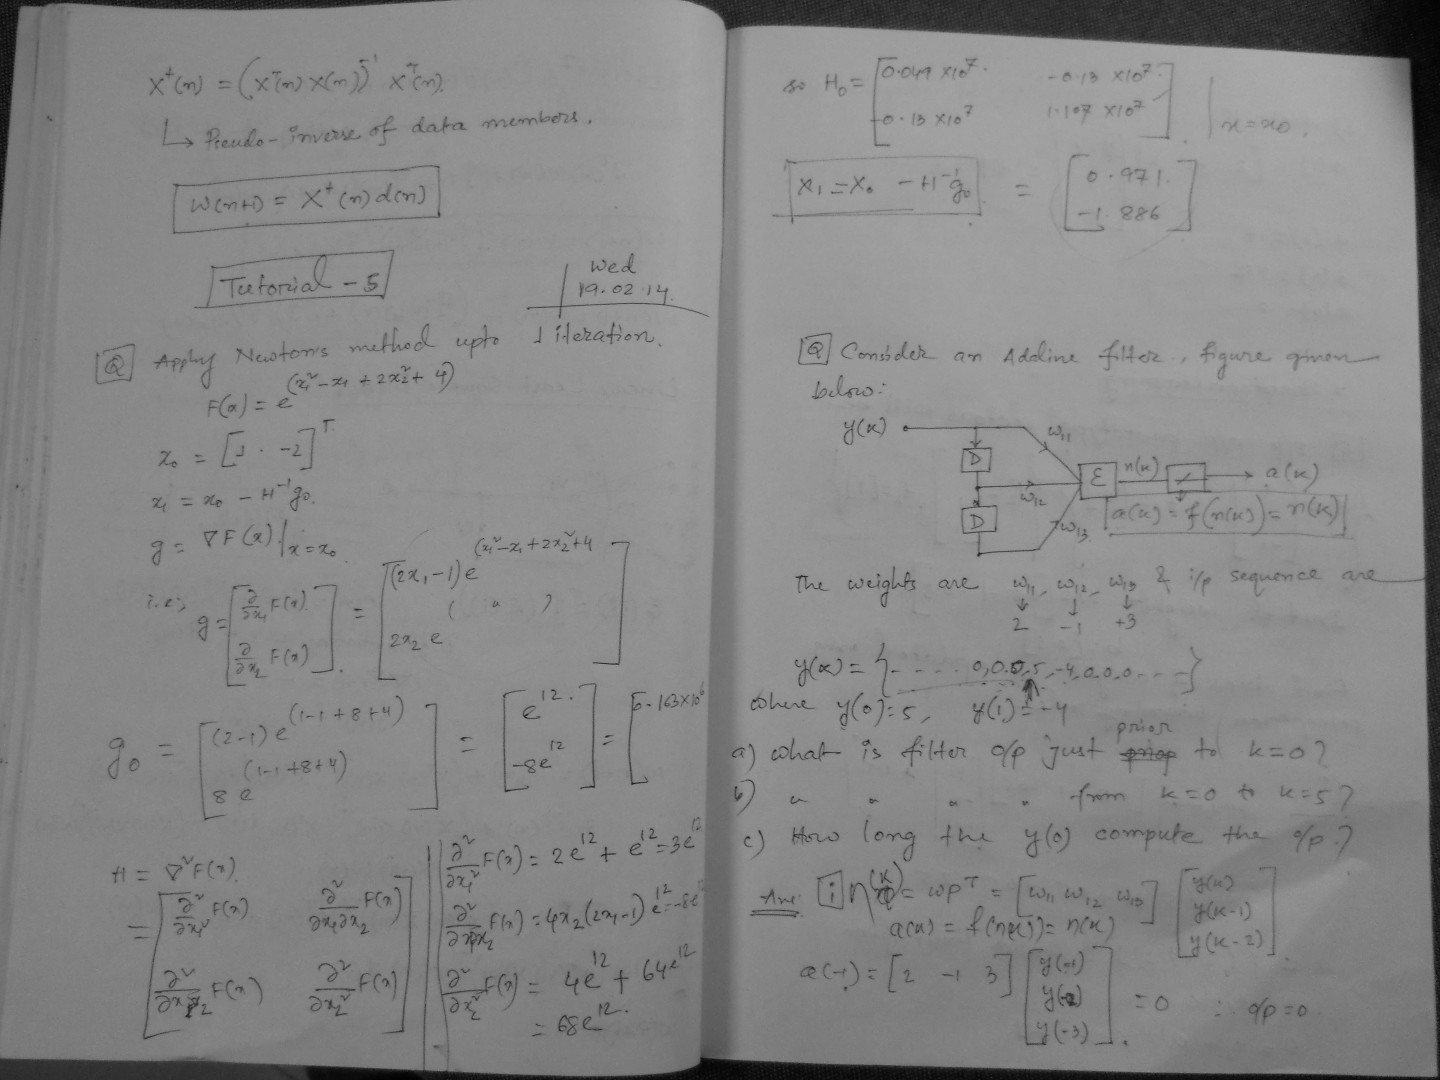 X⁺(n) = (Xᵀ(n) X(n))⁻¹ Xᵀ(n).
↳ Pseudo-inverse of data members.
W(n+1) = X⁺(n) d(n)
Tutorial - 5
Wed
19.02.14
Q Apply Newton's method upto 1 iteration.
F(x) = e^(x₁² - x₁ + 2x₂² + 4)
x₀ = [1 . -2]ᵀ
x₁ = x₀ - H⁻¹g₀.
g = ∇F(x)|x=x₀
i.e; g = [∂/∂x₁ F(x) ; ∂/∂x₂ F(x)] = [(2x₁-1) e^(x₁² - x₁ + 2x₂² + 4) ; 2x₂ e^( " )]
g₀ = [(2-1) e^(1-1+8+4) ; 8 e^(1-1+8+4)] = [e^12 ; -8e^12] = [0.163×10⁶
H = ∇²F(x).
= [∂²/∂x₁² F(x) ∂²/∂x₁∂x₂ F(x) ; ∂²/∂x₁x₂ F(x) ∂²/∂x₂² F(x)]
∂²/∂x₁² F(x) = 2e^12 + e^12 = 3e^12
∂²/∂x₁x₂ F(x) = 4x₂(2x₁-1) e^12 = -8e^12
∂²/∂x₂² F(x) = 4e^12 + 64e^12
= 68e^12.
so H₀ = [0.049 ×10⁷ -0.13 ×10⁷ ; -0.13 ×10⁷ 1.107 ×10⁷] | x=x₀.
X₁ = X₀ - H⁻¹g₀ = [0.971 ; -1.886]
Q Consider an Adaline filter, figure given
below:
y(k) w₁₁
D Σ n(k) a(k)
w₁₂
D w₁₃ a(k) = f(n(k)) = n(k)
The weights are w₁₁, w₁₂, w₁₃ & i/p sequence are
↓ ↓ ↓
2 -1 +3
y(k) = {- - . . . 0,0.0,5,-4,0.0.0. . - -}
where y(0)=5, y(1)=-4
a) what is filter o/p just prior to k=0?
b) " " " " from k=0 to k=5?
c) How long the y(0) compute the o/p.?
Ans: i n(k) = wpᵀ = [w₁₁ w₁₂ w₁₃] [y(k) ; y(k-1) ; y(k-2)]
a(k) = f(n(k)) = n(k)
a(-1) = [2 -1 3] [y(-1) ; y(-2) ; y(-3)] = 0 ∴ o/p = 0